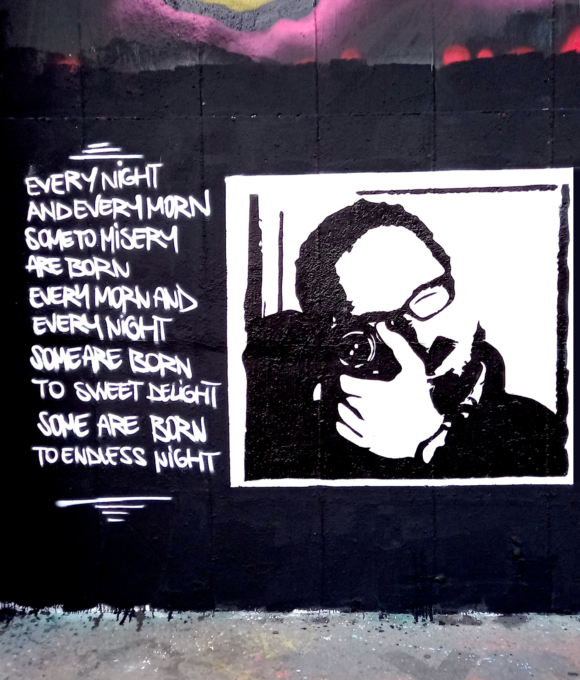 EVERY NiGHT
AND EVERY MORN
SOME TO MiSERY
ARE BORN
EVERY MORN AND
EVERY NiGHT
SOME ARE BORN
TO SWEET DELiGHT
SOME ARE BORN
TO ENDLESS NiGHT